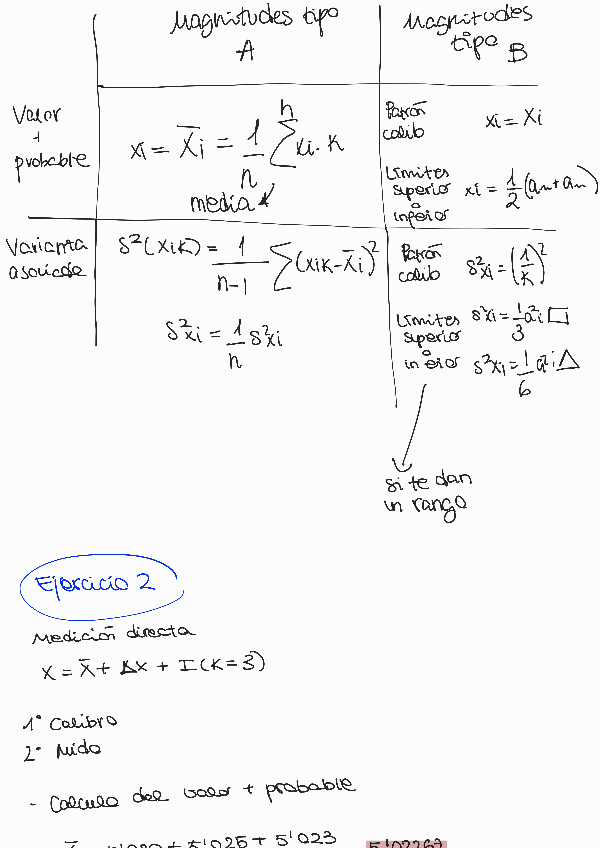 Magnitudes tipo A
Magnitudes tipo B
Valor + probable
xi = X̄i = 1/n Σⁿ xi·k
media
Patrón calib xi = Xi
Límites superior e inferior xi = 1/2 (am + am)
Varianza asociada
s²(xik) = 1/(n-1) Σ(xik - x̄i)²
s²xi = 1/n s²xi
Patrón calib s²xi = (1/K)²
Límites superior o inferior s²xi = 1/3 a²i □
s²xi = 1/6 a²i △
si te dan
un rango
Ejercicio 2
Medición directa
X = X̄ + ΔX ± I(K=3)
1º Calibro
2º Mido
- Calculo del valor + probable
+ 5'025 + 5'023